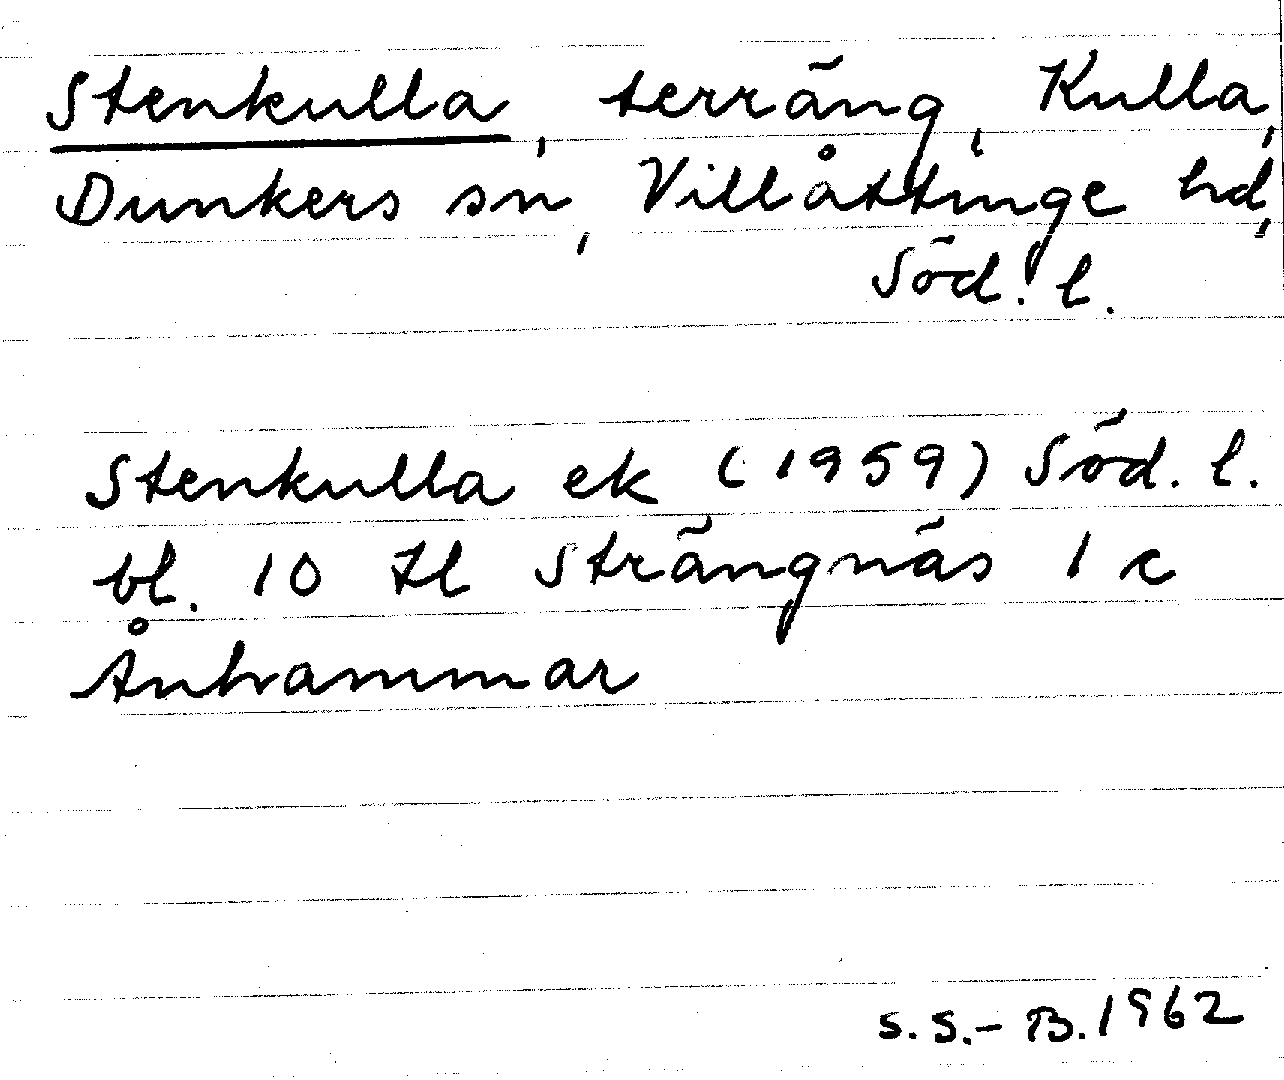 Stenkulla, terräng, Kulla,
Dunkers sn, Villåttinge hd,
Söd. l.
Stenkulla ek (1959) Söd. l.
bl. 10 tl Strängnäs 1 c
Ånhammar
S. S.-B. 1962